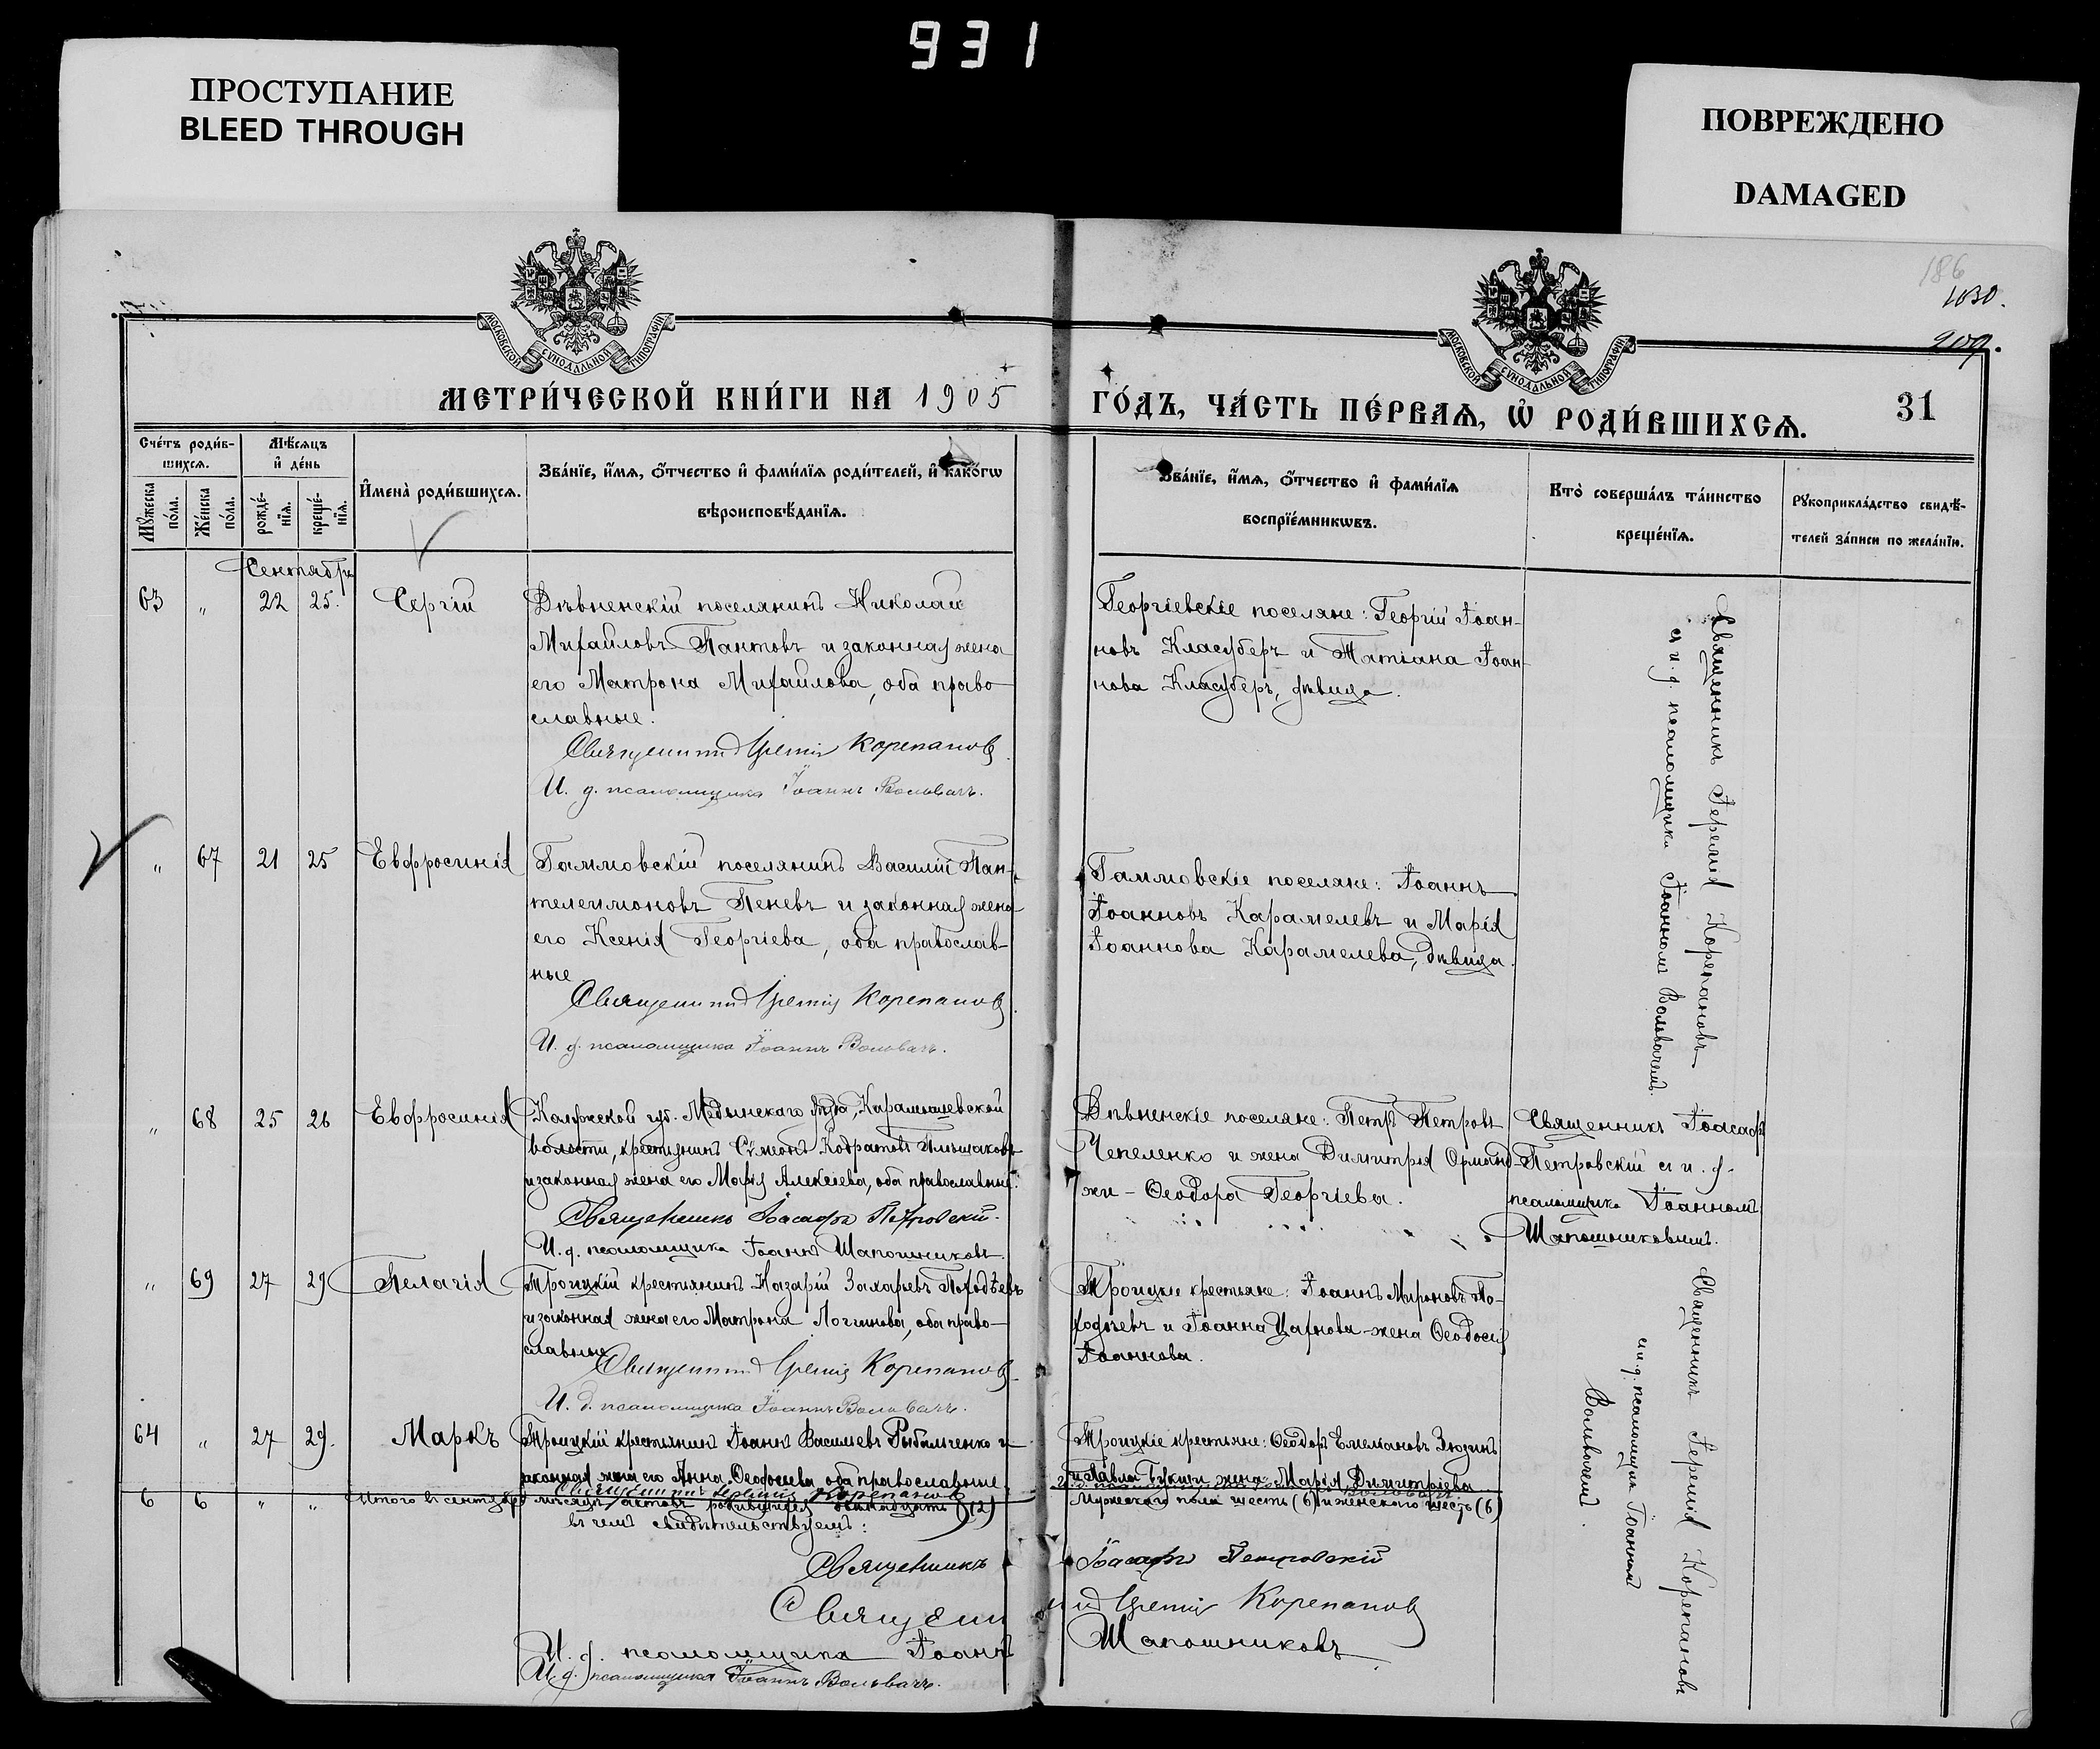 931
ПРОСТУПАНИЕ
BLEED THROUGH
ПОВРЕЖДЕНО
DAMAGED
186
1030.
209.
МОСКОВСКОЙ СѴНОДАЛЬНОЙ ТИПОГРАФІИ
МОСКОВСКОЙ СѴНОДАЛЬНОЙ ТИПОГРАФІИ
МЕТРИ́ЧЕСКОЙ КНИ́ГИ НА 1905
ГО́ДЪ, ЧА́СТЬ ПЕ́РВАѦ, Ѡ҆ РОДИ́ВШИХСѦ.
31
Сче́тъ роди́в-
шихсѧ.
Мѣ́сѧцъ
и҆ де́нь
Мꙋ́жеска
по́ла.
Же́нска
по́ла.
рожде́-
нїѧ.
креще́-
нїѧ.
И҆мена̀ роди́вшихсѧ.
Зва́нїе, и҆́мѧ, ѻ҆́тчество и҆ фами́лїѧ роди́телей, и҆ како́гѡ
вѣроисповѣ́данїѧ.
Зва́нїе, и҆́мѧ, ѻ҆́тчество и҆ фами́лїѧ
воспрїе́мникѡвъ.
Кто̀ соверша́лъ та́инство
креще́нїѧ.
Рꙋкоприкла́дство свидѣ́-
телей за́писи по жела́нїю.
Сентябрь
63 „ 22 25. Сергій
Днѣвненскій поселянинъ Николай
Михайловъ Пантовъ и законная жена
его Матрона Михайлова, оба право-
славные.
Священникъ Іеремія Корепановъ
И. д. псаломщика Іоаннъ Воловачъ.
Георгіевскіе поселяне: Георгій Іоан-
новъ Класуберъ и Татіана Іоан-
нова Класуберъ, дѣвица.
Священникъ Іеремія Корепановъ
съ и. д. псаломщика Іоанномъ Воловачемъ.
„ 67 21 25 Евфросинія
Таммовскій поселянинъ Василій Пан-
телеимоновъ Пеневъ и законная жена
его Ксенія Георгіева, оба православ-
ные
Священникъ Іеремія Корепановъ
И. д. псаломщика Іоаннъ Воловачъ.
Таммовскіе поселяне: Іоаннъ
Іоанновъ Карамелевъ и Марія
Іоаннова Карамелева, дѣвица.
„ 68 25 26 Евфросинія
Калужской губ. Медынскаго уѣзда, Карамышевской
волости, крестьянинъ Сѵмеонъ Кодратовъ
и законная жена его Марія Алексіева, оба православные.
Священникъ Іоасафъ Петровскій.
И. д. псаломщика Іоаннъ Шапошниковъ.
Днѣвненскіе поселяне: Петръ Петровъ
Чепеленко и жена Димитрія Орманд-
жи - Ѳеодора Георгіева.
Священникъ Іоасафъ
Петровскій съ и. д.
псаломщика Іоанномъ
Шапошниковымъ.
„ 69 27 29 Пелагія
Троицкій крестьянинъ Назарій Захарьевъ Погодѣевъ
и законная жена его Матрона Логгинова, оба право-
славные
Священникъ Іеремія Корепановъ
И. д. псаломщика Іоаннъ Воловачъ.
Троицкіе крестьяне: Іоаннъ Мироновъ По-
годѣевъ и Іоанна Царнова - жена Ѳеодосія
Іоаннова.
Священникъ Іеремія Корепановъ
и и. д. псаломщика Іоанномъ
Воловачемъ.
64 „ 27 29. Маркъ
Троицкій крестьянинъ Іоаннъ Васильевъ Рыбальченко и
законная жена его Анна Ѳеодосіева оба православные
Священникъ Іеремія Корепановъ
Троицкіе крестьяне: Ѳеодоръ Емеліановъ Зюзинъ
и Павла жена Марія Димитріева
6 6 „ „ Итого въ сентябрѣ мѣсяцѣ актовъ родившихся двѣнадцать (12)
Мужескаго пола шесть (6) и женскаго шесть (6)
въ чемъ свидѣтельствуемъ:
Священникъ Іоасафъ Петровскій
Священникъ Іеремія Корепановъ
И. д. псаломщика Іоаннъ Шапошниковъ
И. д. псаломщика Іоаннъ Воловачъ.